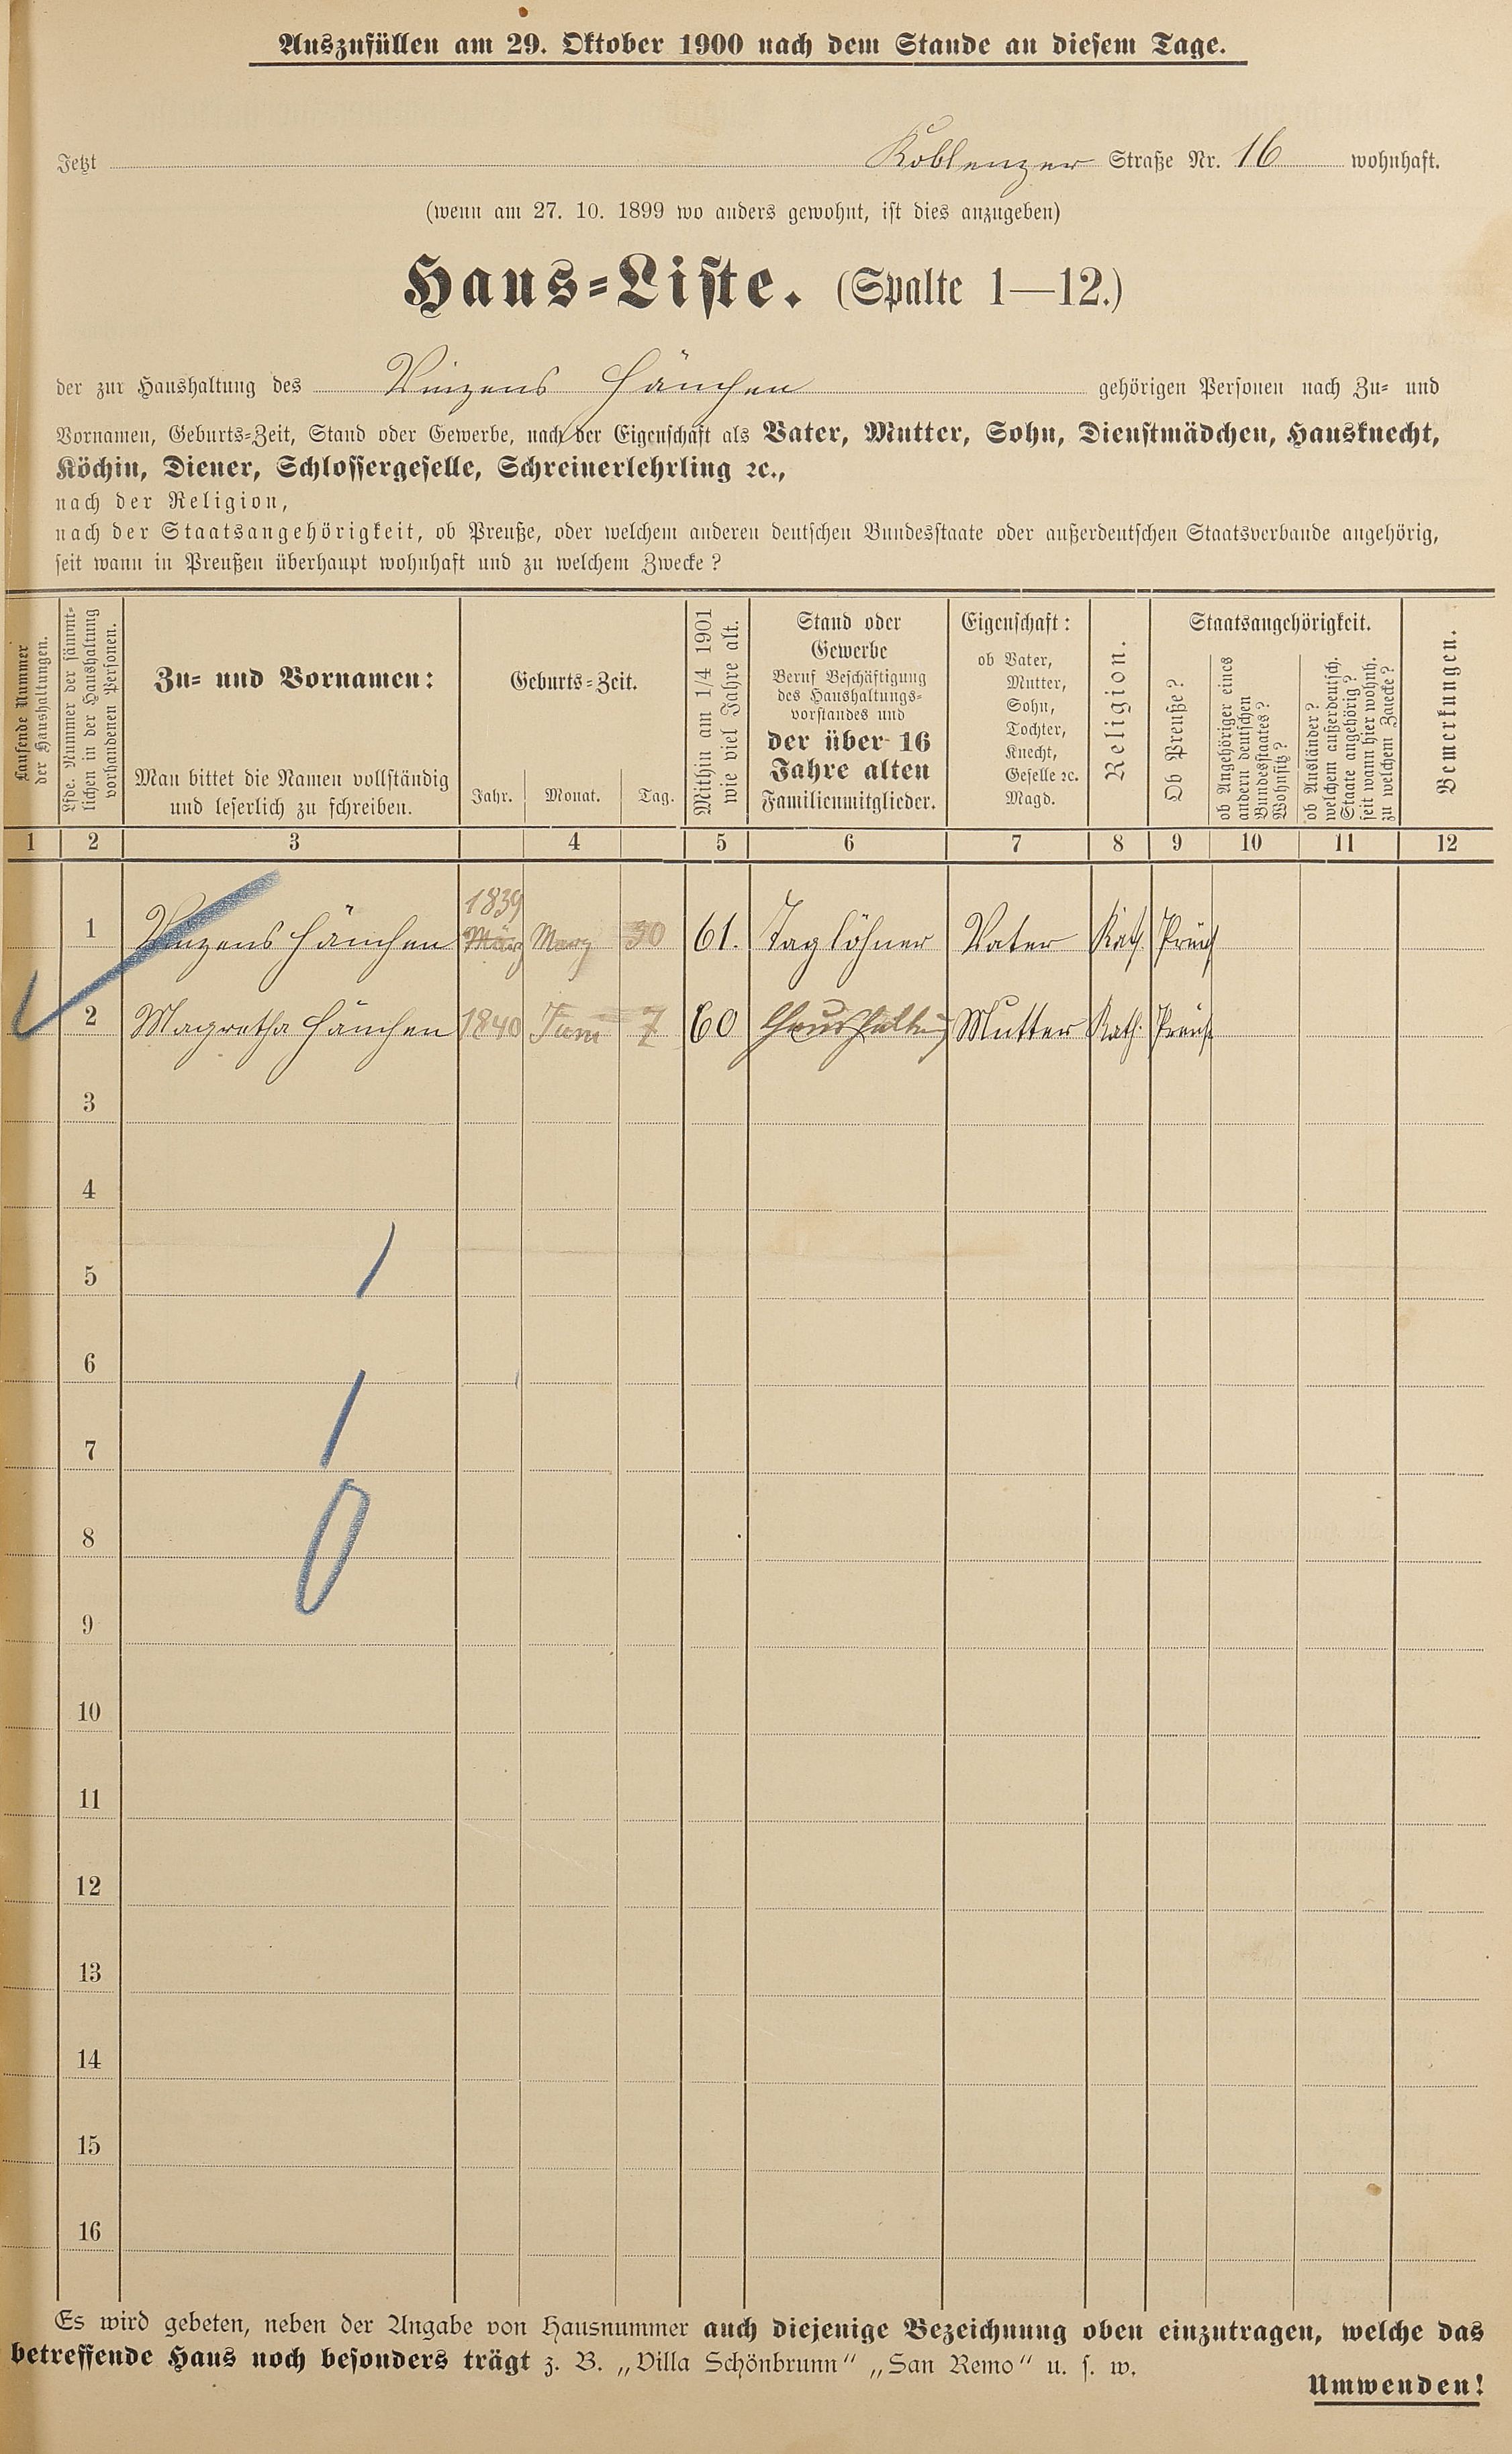 Auszufüllen am 29. Oktober 1900 nach dem Stande an diesem Tage.
Jetzt Koblenzer Straße Nr. 16 wohnhaft.
(wenn am 27. 10. 1899 wo anders gewohnt, ist dies anzugeben)
Haus-Liste. (Spalte 1—12.)
der zur Haushaltung des Vinzens Hänchen gehörigen Personen nach Zu- und
Vornamen, Geburts-Zeit, Stand oder Gewerbe, nach der Eigenschaft als Vater, Mutter, Sohn, Dienstmädchen, Hausknecht,
Köchin, Diener, Schlossergeselle, Schreinerlehrling ꝛc.,
nach der Religion,
nach der Staatsangehörigkeit, ob Preuße, oder welchem anderen deutschen Bundesstaate oder außerdeutschen Staatsverbande angehörig,
seit wann in Preußen überhaupt wohnhaft und zu welchem Zwecke?
Laufende Nummer
der Haushaltungen.
Lfde. Nummer der sämmt-
lichen in der Haushaltung
vorhandenen Personen.
Zu- und Vornamen:
Man bittet die Namen vollständig
und leserlich zu schreiben.
Geburts-Zeit.
Jahr. Monat. Tag.
Mithin am 1/4 1901
wie viel Jahre alt.
Stand oder
Gewerbe
Beruf Beschäftigung
des Haushaltungs-
vorstandes und
der über 16
Jahre alten
Familienmitglieder.
Eigenschaft:
ob Vater,
Mutter,
Sohn,
Tochter,
Knecht,
Geselle ꝛc.
Magd.
Religion.
Staatsangehörigkeit.
Ob Preuße?
ob Angehöriger eines
andern deutschen
Bundesstaates?
Wohnsitz?
ob Ausländer?
welchem außerdeutsch.
Staate angehörig?
seit wann hier wohnh.
zu welchem Zwecke?
Bemerkungen.
1 2 3 4 5 6 7 8 9 10 11 12
1839
1 Vinzens Hänchen März 30 61. Taglöhner Vater Kath. Preuß
2 Magretha Hänchen 1840 Juni 7 60 Haushaltung Mutter Kath. Preuß
3
4
5
6
7
8
9
10
11
12
13
14
15
16
Es wird gebeten, neben der Angabe von Hausnummer auch diejenige Bezeichnung oben einzutragen, welche das
betreffende Haus noch besonders trägt z. B. „Villa Schönbrunn“ „San Remo“ u. s. w.
Umwenden!